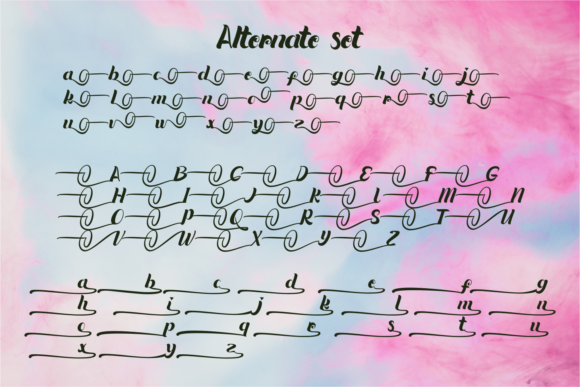 Alternate set
a b c d e f g h i j
k l m n o p q r s t
u v w x y z
A B C D E F G
H I J K L M N
O P Q R S T U
V W X Y Z
a b c d e f g
h i j k l m n
o p q r s t u
x y z